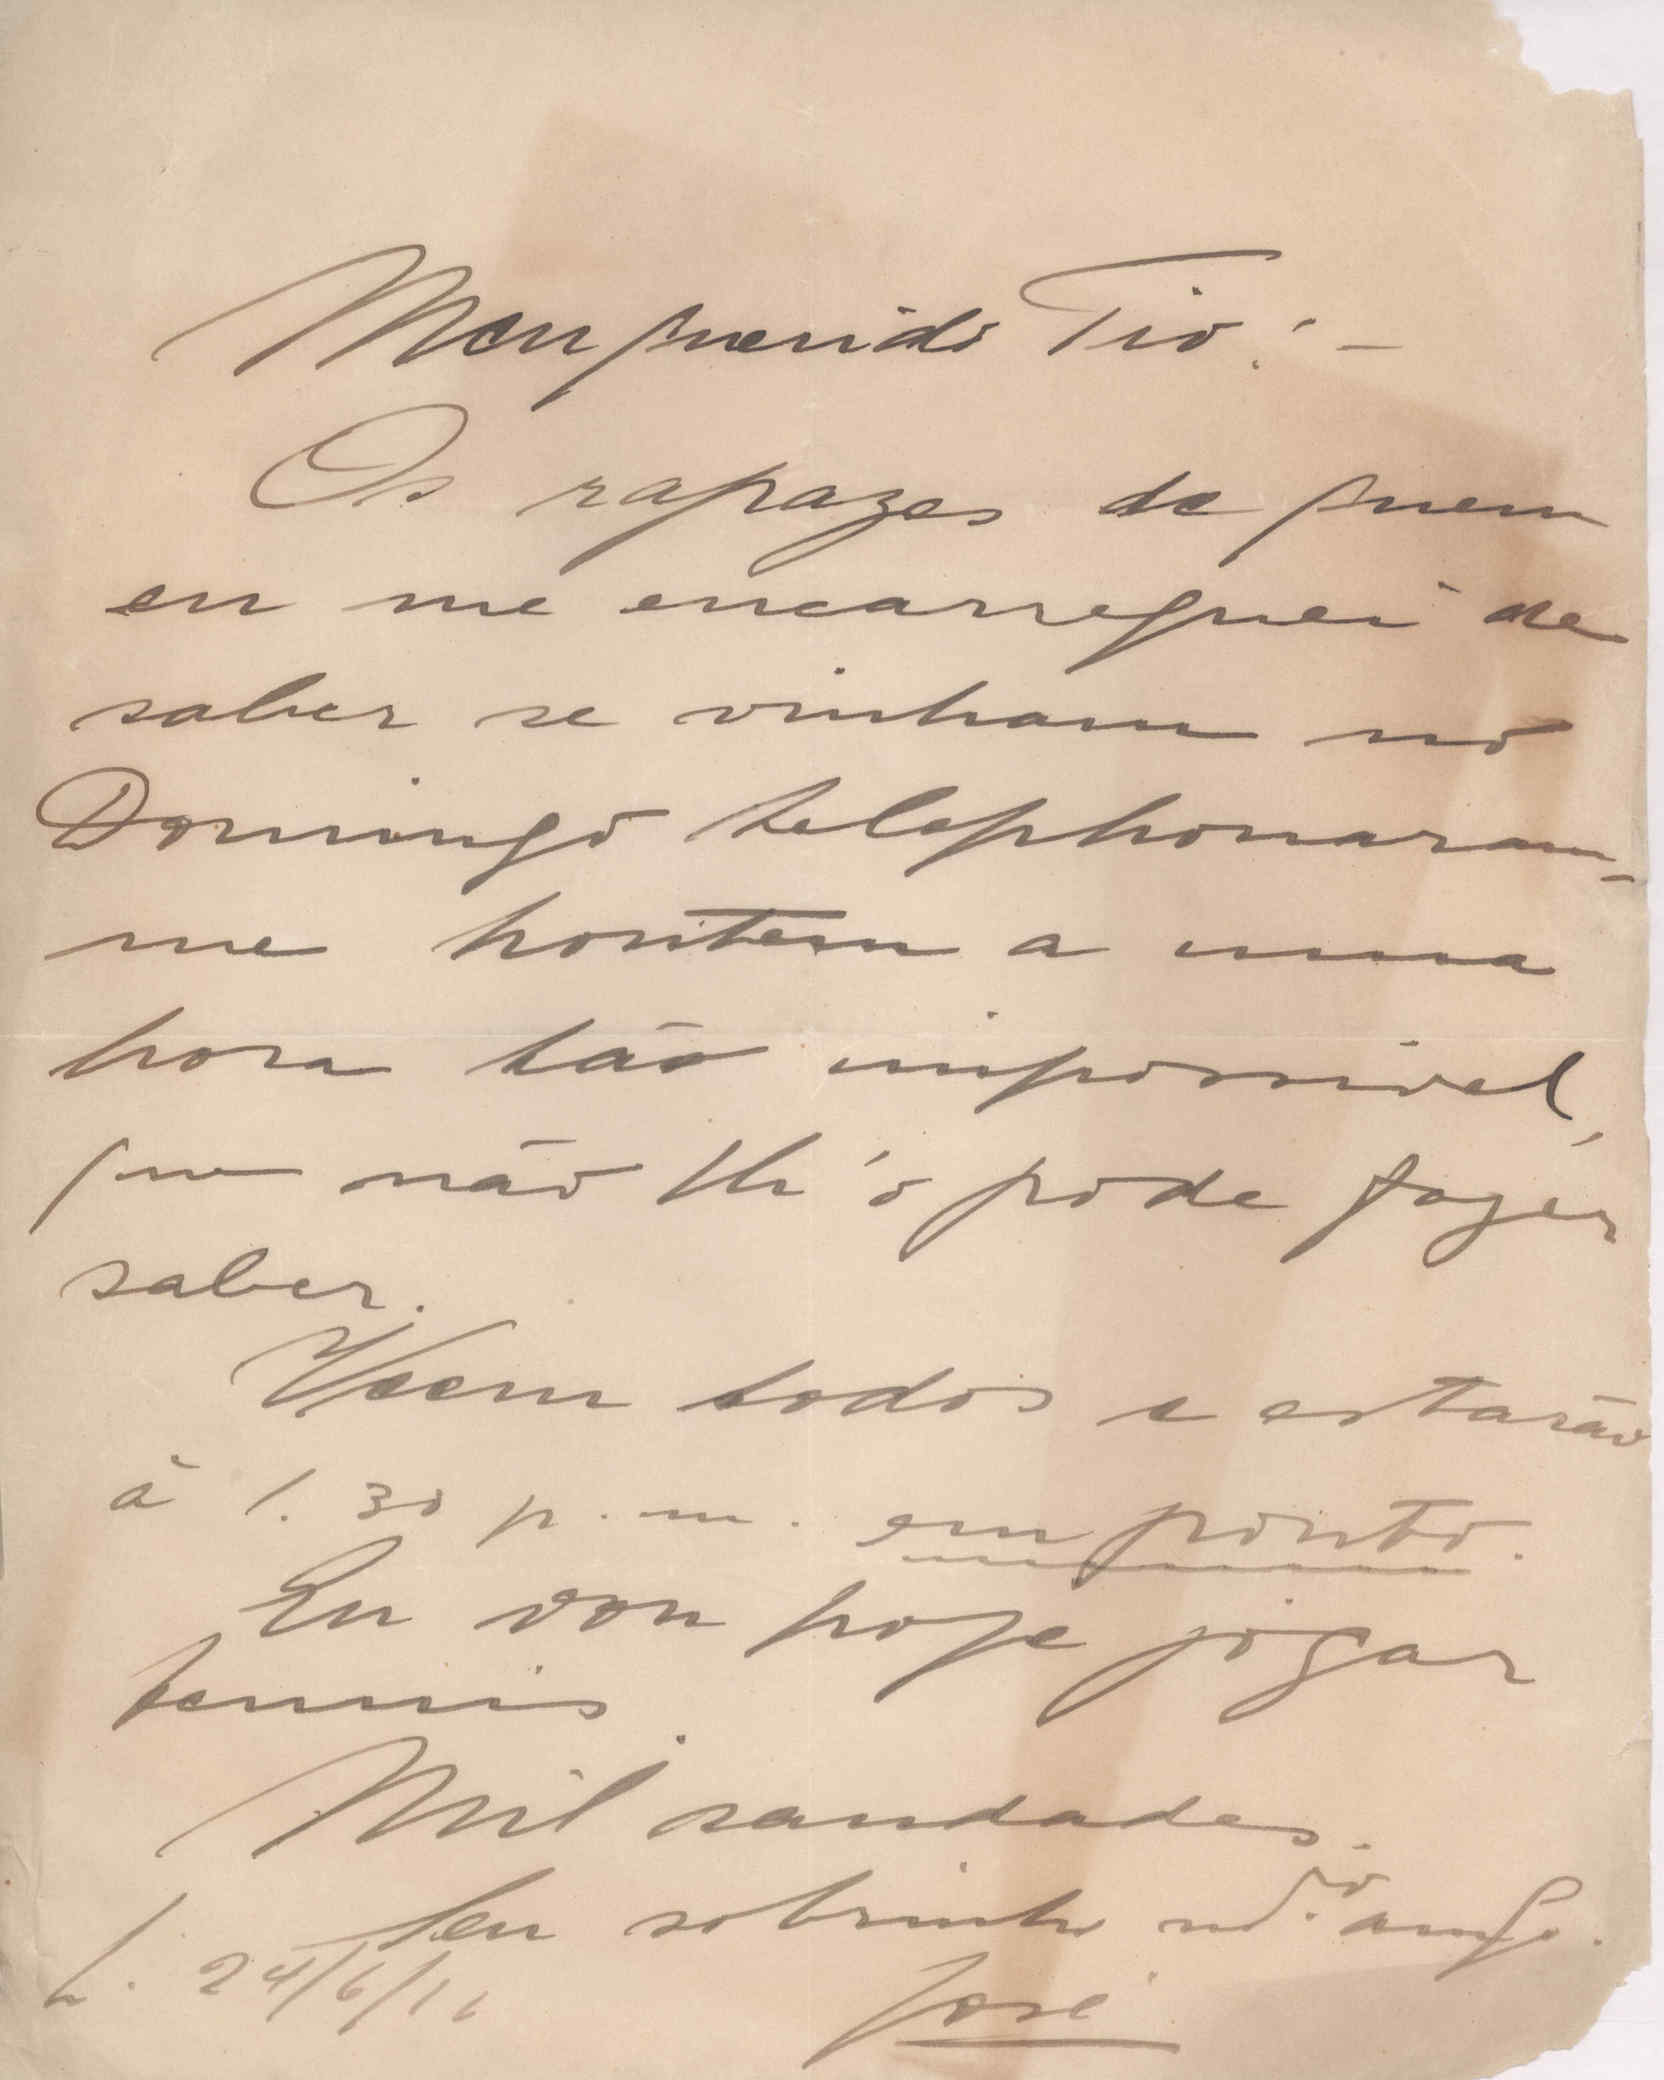 Meu querido Tio: –
Os rapazes de quem
eu me encarreguei de
saber se vinham no
Domingo telephonaram-
me hontem a uma
hora tão impossivel,
que não lh'o pode fazer
saber.
Veem todos e estarão
á 1.30 p.m. em ponto.
Eu vou hoje jogar
tennis.
Mil saudades.
Seu sobrinho m.to amigo.
L. 24/6/16
José